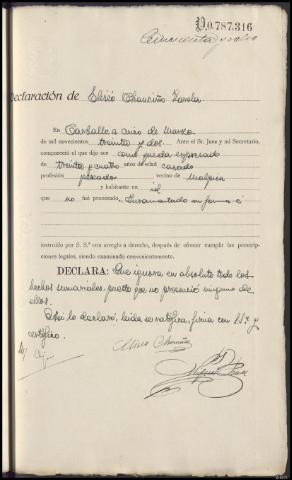 0.787.316
Cincuenta y
Declaración de Eliseo Chouciño Varela
En Carballo a cinco de Marzo
de mil novecientos treinta y dos. Ante el Sr. Juez y mi Secretario,
compareció el que dijo ser como queda expresado
de treinta y cuatro años de edad casado
profesión pescador vecino de Malpica
y habitante en id
que no fué procesado, Juramentado en forma é
instruído por S. Sª con arreglo a derecho, después de ofrecer cumplir las prescrip-
ciones legales, siendo examinado convenientemente.
DECLARA: Que ignora en absoluto todo los
hechos sumariales, puesto que no presenció ninguno de
ellos.
Así lo declaró, leída se ratifica, firma con SSª y
certifico.